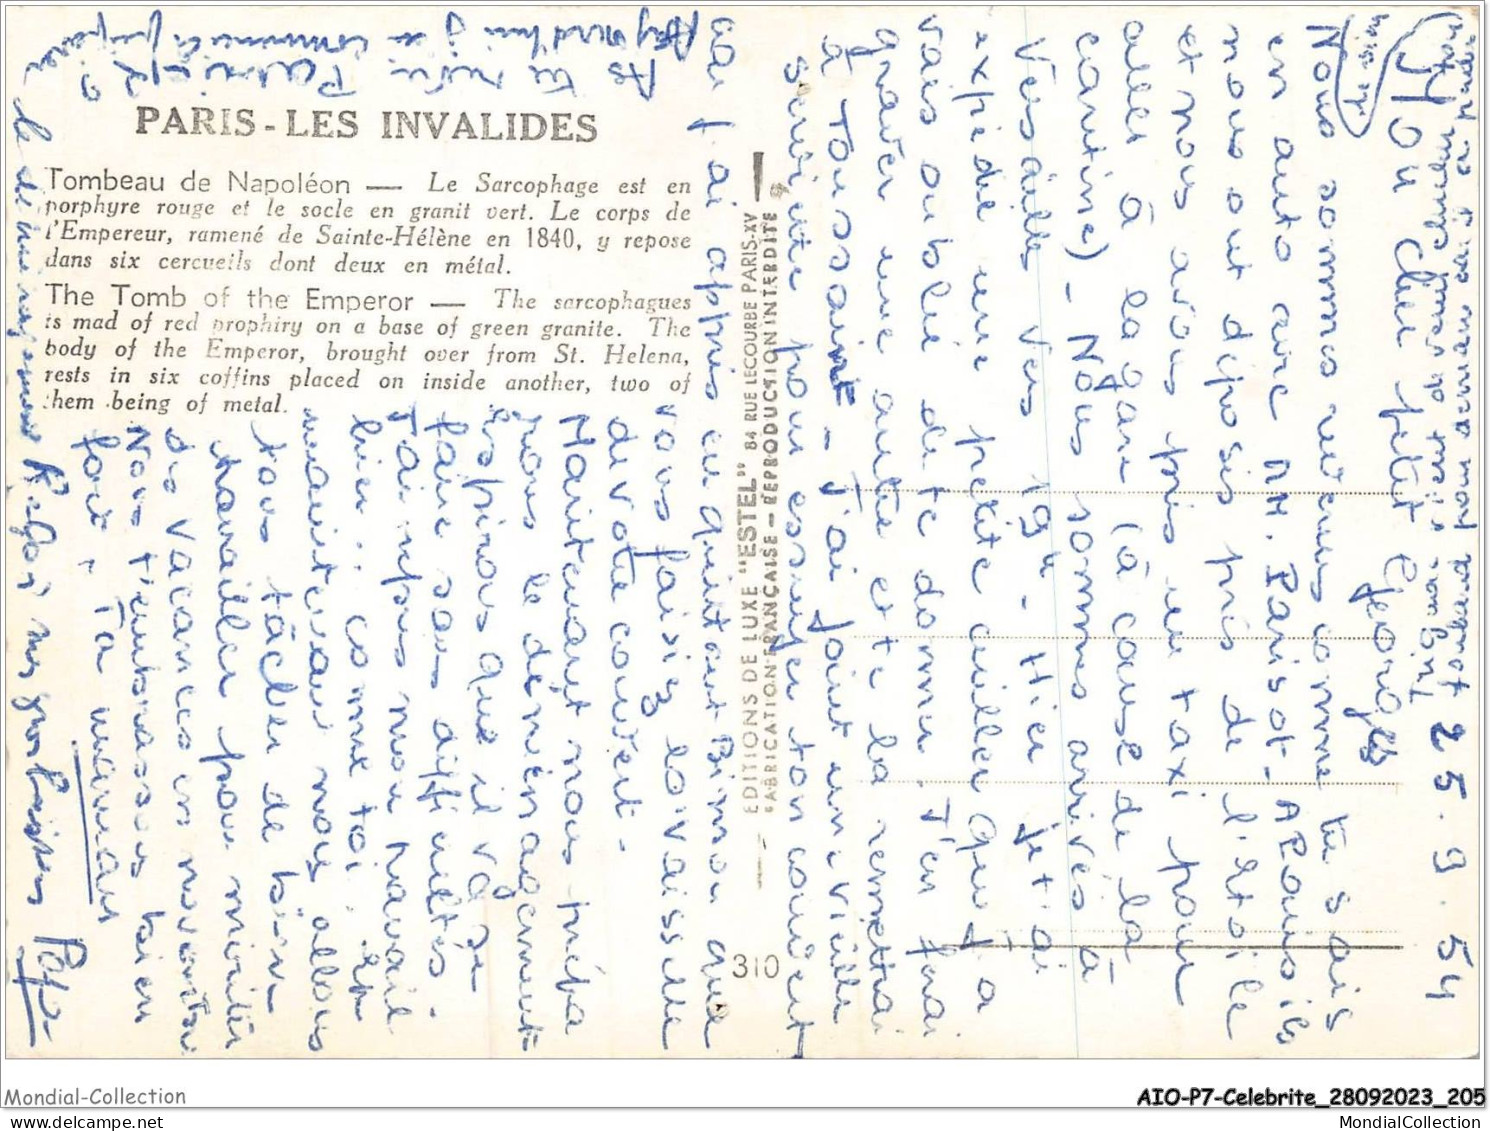 PARIS - LES INVALIDES
Tombeau de Napoléon — Le Sarcophage est en
porphyre rouge et le socle en granit vert. Le corps de
l'Empereur, ramené de Sainte-Hélène en 1840, y repose
dans six cercueils dont deux en métal.
The Tomb of the Emperor — The sarcophagues
is mad of red prophiry on a base of green granite. The
body of the Emperor, brought over from St. Helena,
rests in six coffins placed on inside another, two of
them being of metal.
EDITIONS DE LUXE "ESTEL" 84 RUE LECOURBE PARIS-XV
FABRICATION FRANÇAISE - REPRODUCTION INTERDITE
310
25.9.54
Mon cher petit Georges
Nous sommes revenus comme tu sais
en auto avec MM. Parisot- APousils
nous ont déposés près de l'Etoile
et nous avons pris un taxi pour
aller à la gare (à cause de la
cantine) - Nous sommes arrivés à
Versailles vers 19h - Hier je t'ai
expédié une petite cuiller que j'a
vais oublié de te donner. J'en ferai
graver une autre et te la remettrai
à Toussaint - J'ai joint une vieille
serviette pour essuyer ton couvert
car j'ai appris en quittant Bimon que
vous faisiez la vaisselle
de votre couvert.
Maintenant nous prépa
rons le déménagement
espérons que il va se
faire sans difficultés.
J'ai repris mon travail
hier : comme toi. Et
maintenant nous allons
tous tâcher de bien
travailler pour mériter
des vacances en novembre
Nous t'embrassons bien
fort. Ta maman
Je te
Reçois mes gros baisers Papa
As tu
aujourd'hui
Mondial-Collection
AIO-P7-Celebrite_28092023_205
MondialCollection